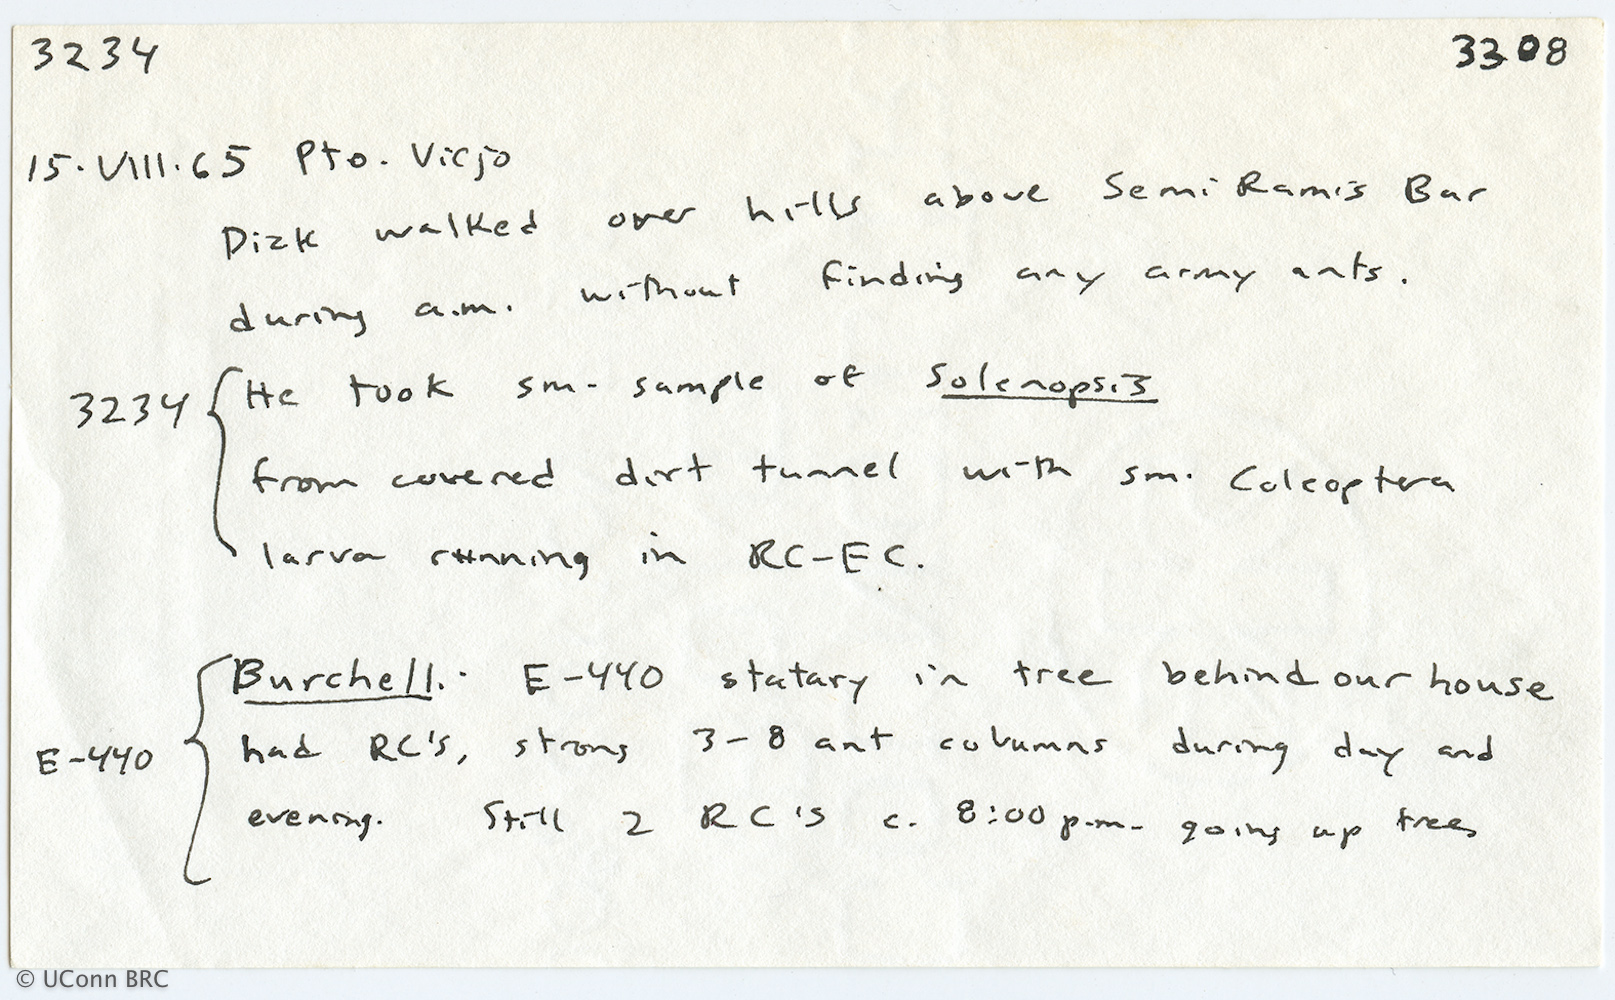 3234 3308
15.VIII.65 Pto. Viejo
Dick walked over hills above SemiRamis Bar
during a.m. without finding any army ants.
3234 He took sm. sample of Solenopsis
from covered dirt tunnel with sm. Coleoptera
larva running in RC-EC.
Burchelli. E-440 statary in tree behind our house
E-440 had RC's, strong 3-8 ant columns during day and
evening. Still 2 RC's c. 8:00 p.m. going up trees
© UConn BRC